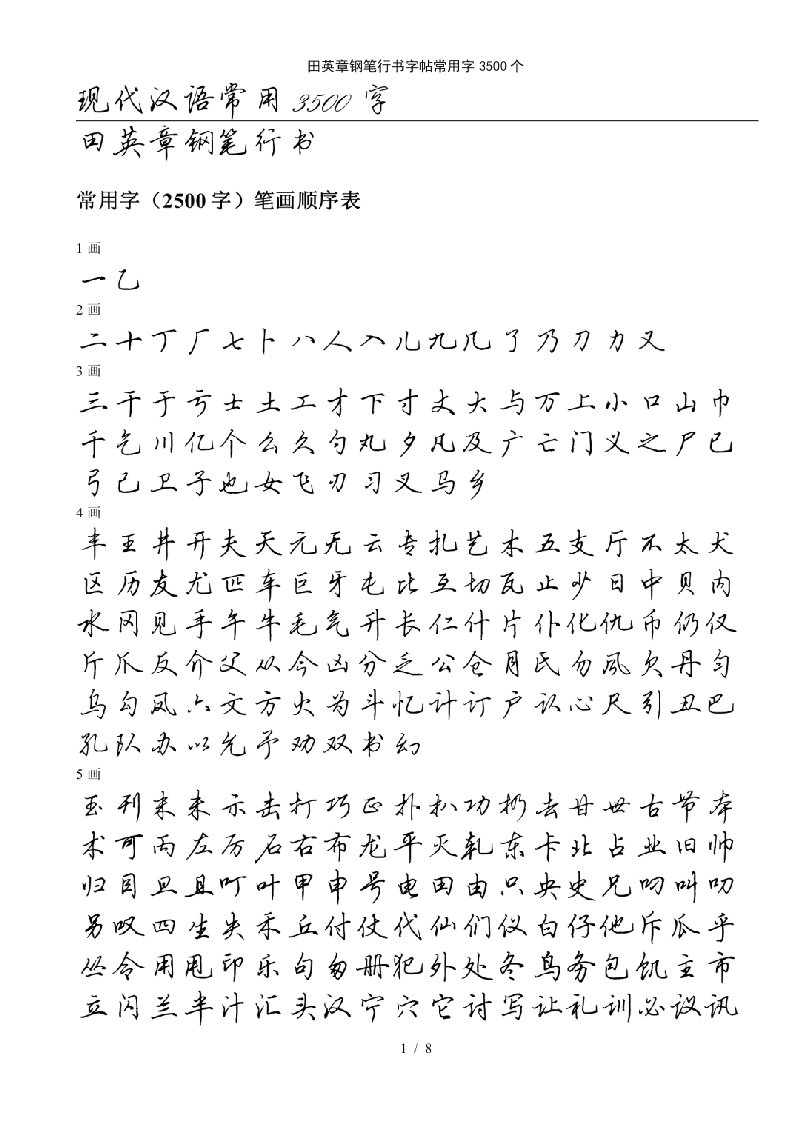 田英章钢笔行书字帖常用字 3500 个
现代汉语常用 3500 字
田英章钢笔行书
常用字（2500 字）笔画顺序表
1 画
一乙
2 画
二十丁厂七卜八人入儿九几了乃刀力又
3 画
三干于亏士土工才下寸丈大与万上小口山巾
千乞川亿个么久勺丸夕凡及广亡门义之尸已
弓己卫子也女飞刃习叉马乡
4 画
丰王井开夫天元无云专扎艺木五支厅不太犬
区历友尤匹车巨牙屯比互切瓦止少日中贝内
水冈见手午牛毛气升长仁什片仆化仇币仍仅
斤爪反介父从今凶分乏公仓月氏勿风欠丹匀
乌勾凤六文方火为斗忆计订户认心尺引丑巴
孔队办以允予劝双书幻
5 画
玉刊末未示击打巧正扑扒功扔去甘世古节本
术可丙左厉石右布龙平灭轧东卡北占业旧帅
归目旦且叮叶甲申号电田由只央史兄叼叫叨
另叹四生失禾丘付仗代仙们仪白仔他斥瓜乎
丛令用甩印乐句匆册犯外处冬鸟务包饥主市
立闪兰半汁汇头汉宁穴它讨写让礼训必议讯
1 / 8